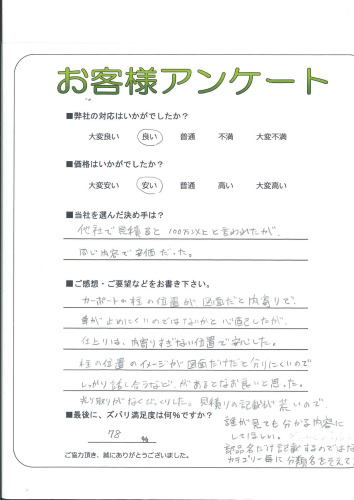 お客様アンケート
■弊社の対応はいかがでしたか？
大変良い 良い 普通 不満 大変不満
■価格はいかがでしたか？
大変安い 安い 普通 高い 大変高い
■当社を選んだ決め手は？
他社で見積ると100万以上と言われたが、
同じ内容で安価だった。
■ご感想・ご要望などをお書き下さい。
カーポートの柱の位置が、図面だと内寄りで、
車が止めにくいのではないかと心配したが、
仕上りは、内寄りすぎない位置で安心した。
柱の位置のイメージが図面だけだと分りにくいので
しっかり話し合うなど、があるとなお良いと思った。
見積りの記載が荒いので、
■最後に、ズバリ満足度は何％ですか？
誰が見ても分かる内容に
してほしい。
78 %
部品名だけ記載するのではな
ご協力頂き、誠にありがとうございました。
カテゴリー毎に分類名をそえて